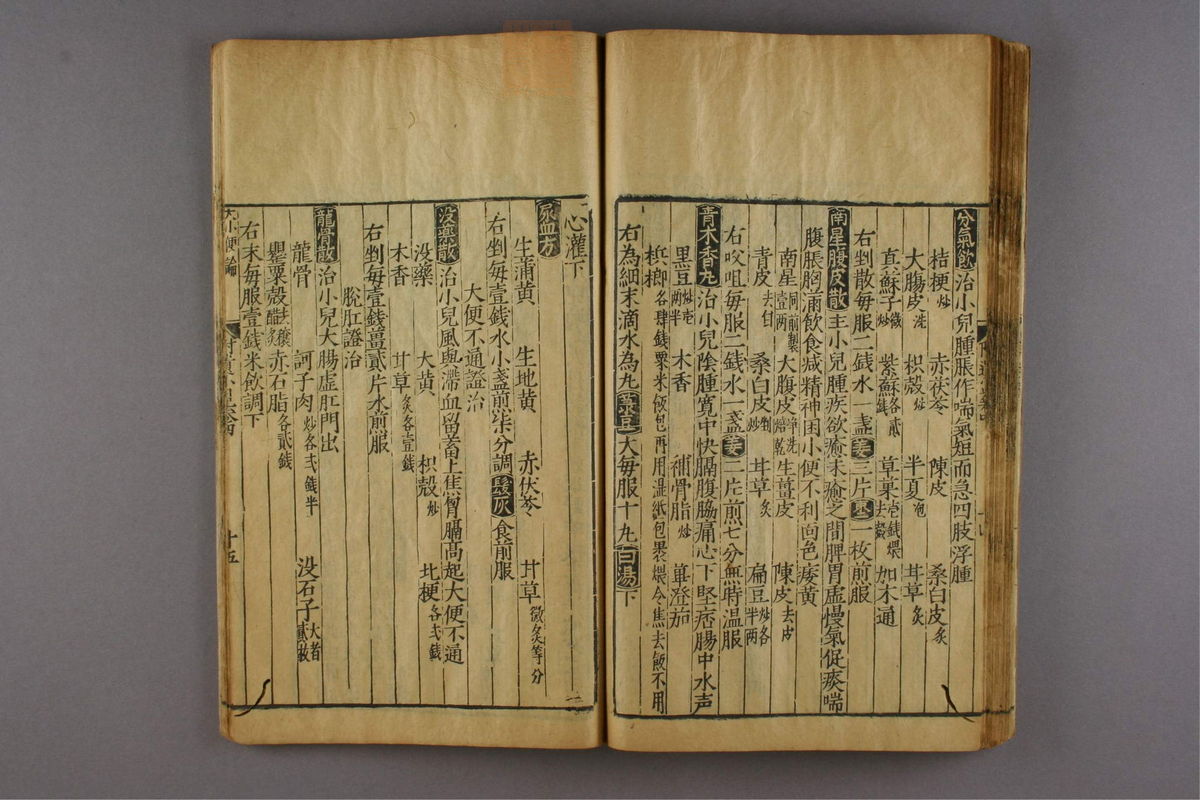 分氣飲治小兒腫脹作喘氣短而急四肢浮腫
桔梗炒 赤茯苓 陳皮 桑白皮炙
大腸皮洗 枳殼炒 半夏泡 甘草炙
真蘇子微炒 紫蘇各貳錢 草菓壹錢煨去殼 如木通
右剉散每服二錢水一盞姜三片棗一枚煎服
南星腹皮散主小兒腫疾欲癒未癒之間脾胃虛慢氣促痰喘
腹脹胸滿飲食减精神困小便不利面色痿黃
南星同前製壹兩 大腹皮淨洗焙乾 生薑皮 陳皮去皮
青皮去白 桑白皮剉炒 甘草炙 扁豆炒各半兩
右㕮咀每服二錢水一盞姜二片煎七分無時温服
青木香丸治小兒陰腫寬中快膈腹脇痛心下堅痞腸中水声
黑豆炒壱兩半 木香 補骨脂炒 蓽澄茄
梹榔各肆錢粟米飯包再用湿紙包裹煨令焦去飯不用
右為細末滴水為丸菉豆大每服十丸白湯下
心灌下
尿血方
生蒲黄 生地黄 赤伏苓 甘草微炙等分
右剉每壹錢水小盞煎柒分調髮灰食前服
大便不通證治
没藥散治小兒風與滯血留蓄上焦胷膈高起大便不通
没藥 大黄 枳殼炒 北梗各弍錢
木香 甘草炙各壹錢
右剉每壹錢薑貳片水煎服
脫肛證治
龍骨散治小兒大腸虛肛門出
龍骨 訶子肉炒各弍錢半 没石子大者貳枚
罌粟殼去穰醋炙 赤石脂各貳錢
右末每服壹錢米飲調下
大小便論 十五